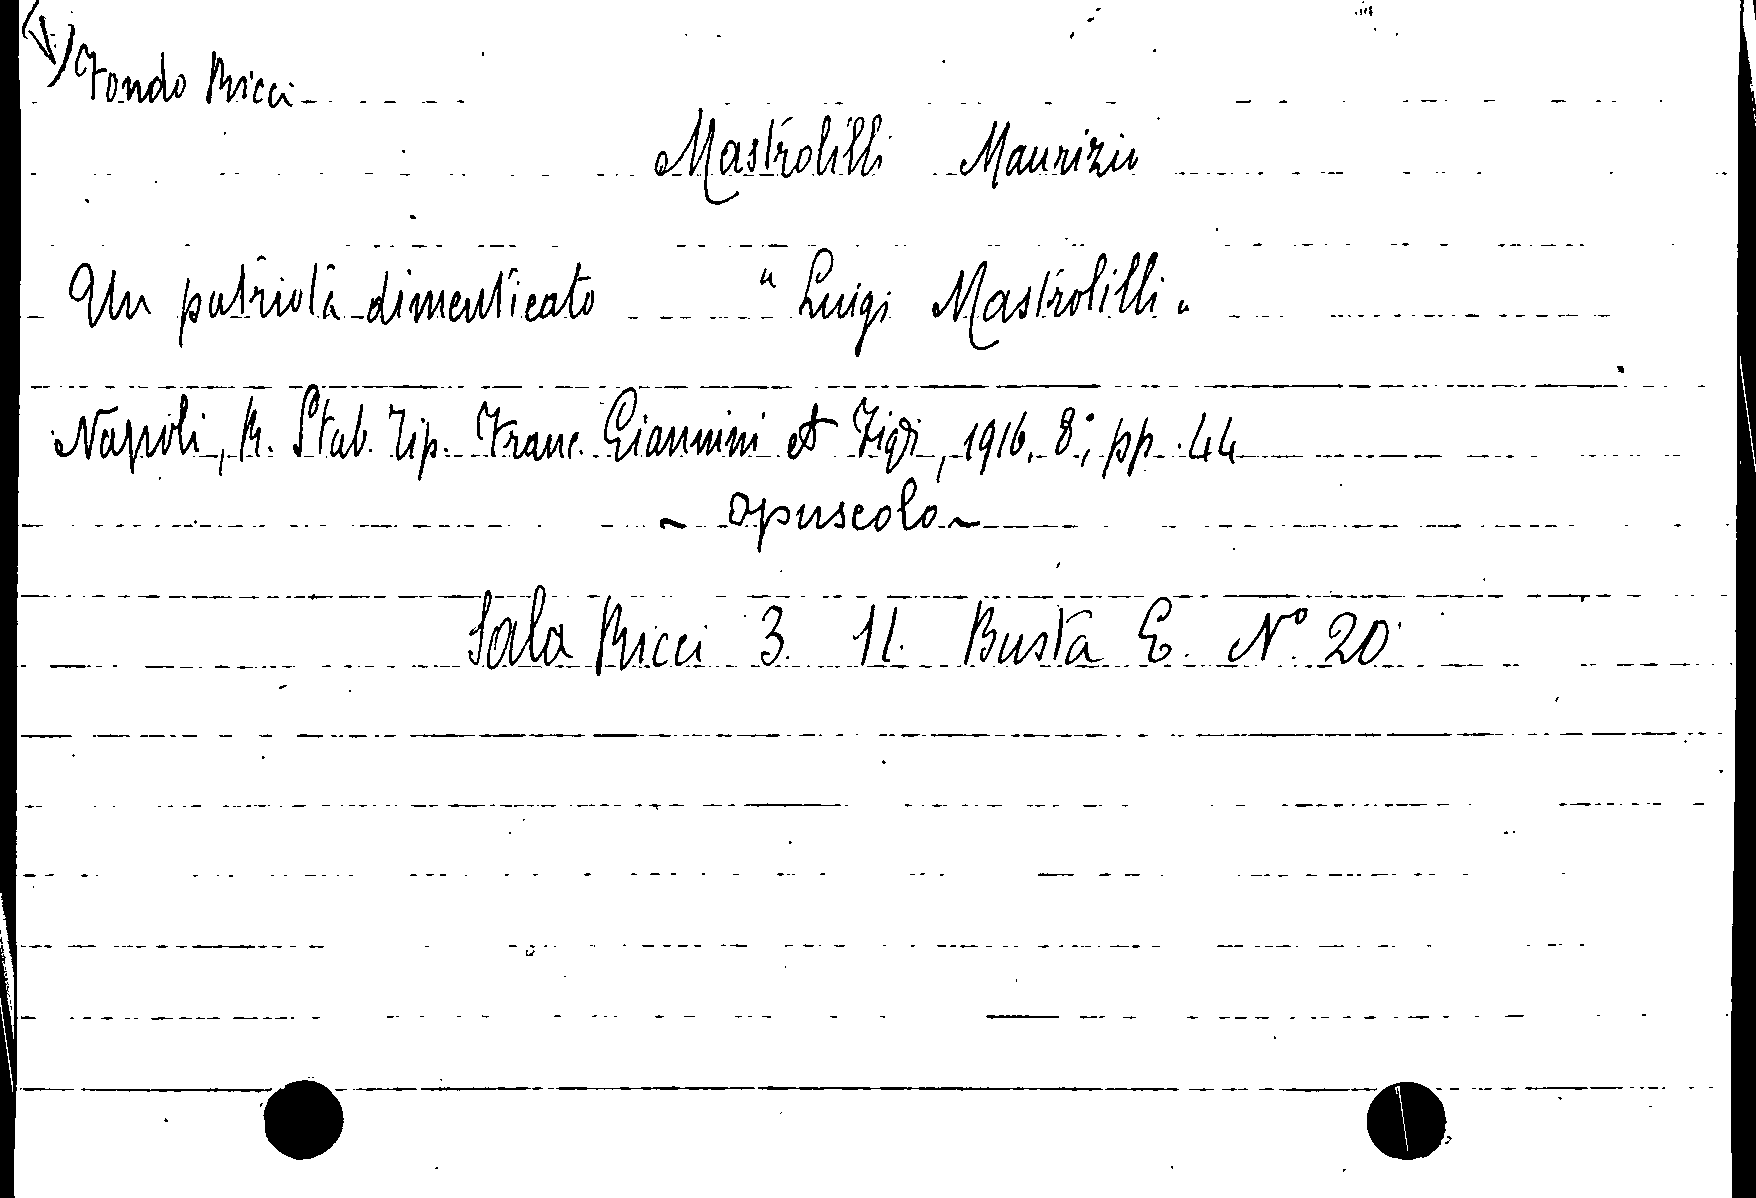 Fondo Ricci
Mastrolilli Maurizio
Un patriota dimenticato " Luigi Mastrolilli "
Napoli, R. Stab. Tip. Franc. Giannini et Figli, 1916. 8°; pp. 44
~ opuscolo ~
Sala Ricci 3. 11. Busta E. N° 20